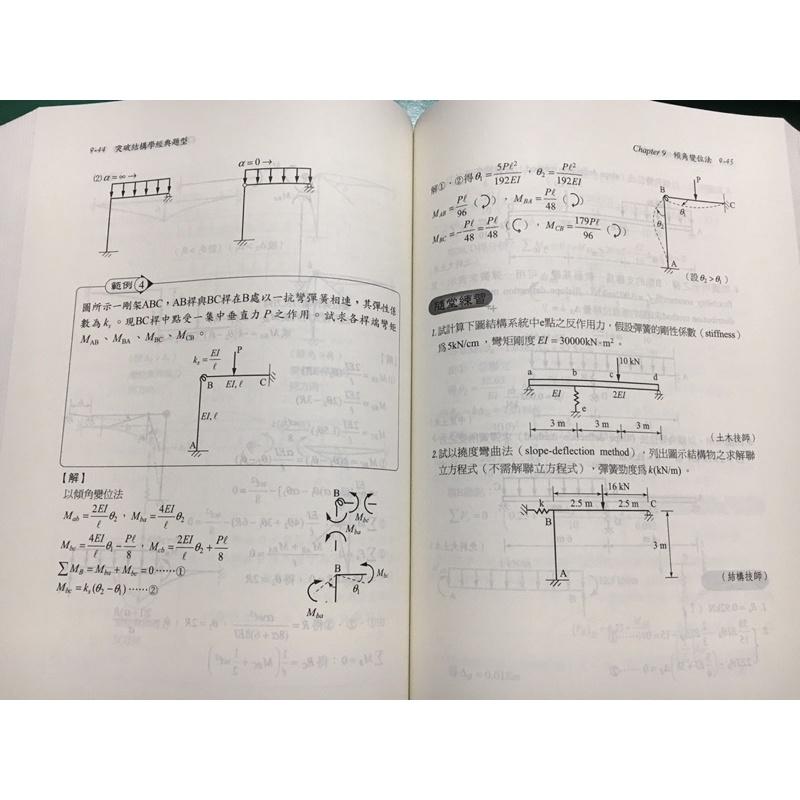 9-44 突破結構學經典題型
(2) α=∞→
α=0→
範例 4
圖所示一剛架ABC，AB桿與BC桿在B處以一抗彎彈簧相連，其彈性係
數為kₛ。現BC桿中點受一集中垂直力P之作用。試求各桿端彎矩
M_AB、M_BA、M_BC、M_CB。
kₛ=EI/ℓ
P
B
EI, ℓ
C
EI, ℓ
A
【解】
以傾角變位法
M_ab=2EI/ℓ θ₂，M_ba=4EI/ℓ θ₂
M_bc=4EI/ℓ θ₁−Pℓ/8，M_cb=2EI/ℓ θ₁+Pℓ/8
∑M_B=M_ba+M_bc=0……①
M_bc=kₛ(θ₂−θ₁)……②
B
M_bc
M_ba
B
M_bc
θ₁
M_ba
Chapter 9 傾角變位法 9-45
解①、②得θ₁=5Pℓ²/192EI，θ₂=Pℓ²/192EI
M_AB=Pℓ/96，M_BA=Pℓ/48
M_BC=−Pℓ/48=Pℓ/48，M_CB=179Pℓ/96
P
B
C
θ₁
θ₂
A
(設θ₂>θ₁)
隨堂練習
1.試計算下圖結構系統中e點之反作用力，假設彈簧的剛性係數（stiffness）
為5kN/cm，彎矩剛度EI=30000kN-m²。
10 kN
a b c d
EI 2EI
e
3 m 3 m 3 m
(土木技師)
2.試以撓度彎曲法（slope-deflection method），列出圖示結構物之求解聯
立方程式（不需解聯立方程式），彈簧勁度為k(kN/m)。
16 kN
k 2.5 m 2.5 m C
B
3 m
A
(結構技師)